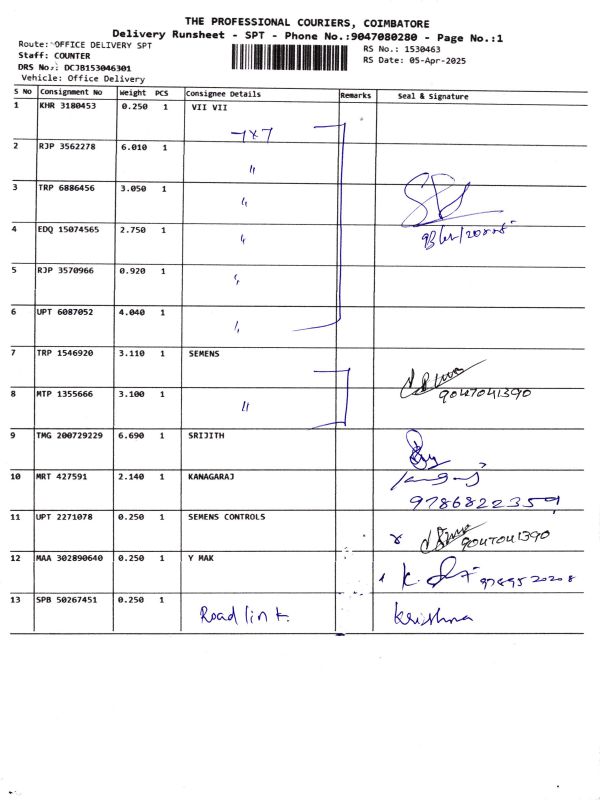 THE PROFESSIONAL COURIERS, COIMBATORE
Delivery Runsheet - SPT - Phone No.:9047080280 - Page No.:1
Route: OFFICE DELIVERY SPT
RS No.: 1530463
Staff: COUNTER
RS Date: 05-Apr-2025
DRS No.: DCJ8153046301
Vehicle: Office Delivery
S No Consignment No Weight PCS Consignee Details Remarks Seal & Signature
1 KHR 3180453 0.250 1 VII VII
7x7
2 RJP 3562278 6.010 1 "
3 TRP 6886456 3.050 1 "
4 EDQ 15074565 2.750 1 "
5 RJP 3570966 0.920 1 "
6 UPT 6087052 4.040 1 "
7 TRP 1546920 3.110 1 SEMENS
9047041390
8 MTP 1355666 3.100 1 "
9 TMG 200729229 6.690 1 SRIJITH
10 MRT 427591 2.140 1 KANAGARAJ
9786822359
11 UPT 2271078 0.250 1 SEMENS CONTROLS
9047041390
12 MAA 302890640 0.250 1 Y MAK
13 SPB 50267451 0.250 1 Road link. Krishna